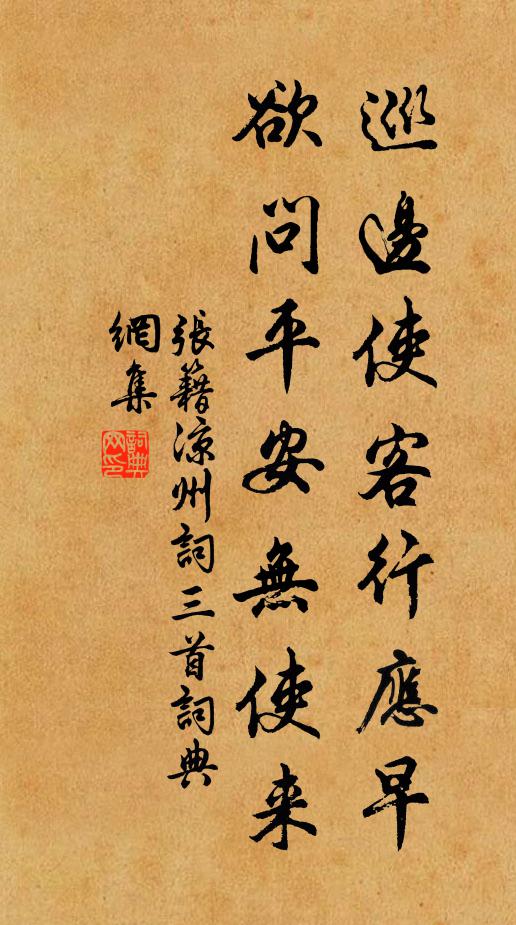 巡邊使客行應早
欲問平安無使来
張籍涼州詞三首詞典
網集
詞典
网印